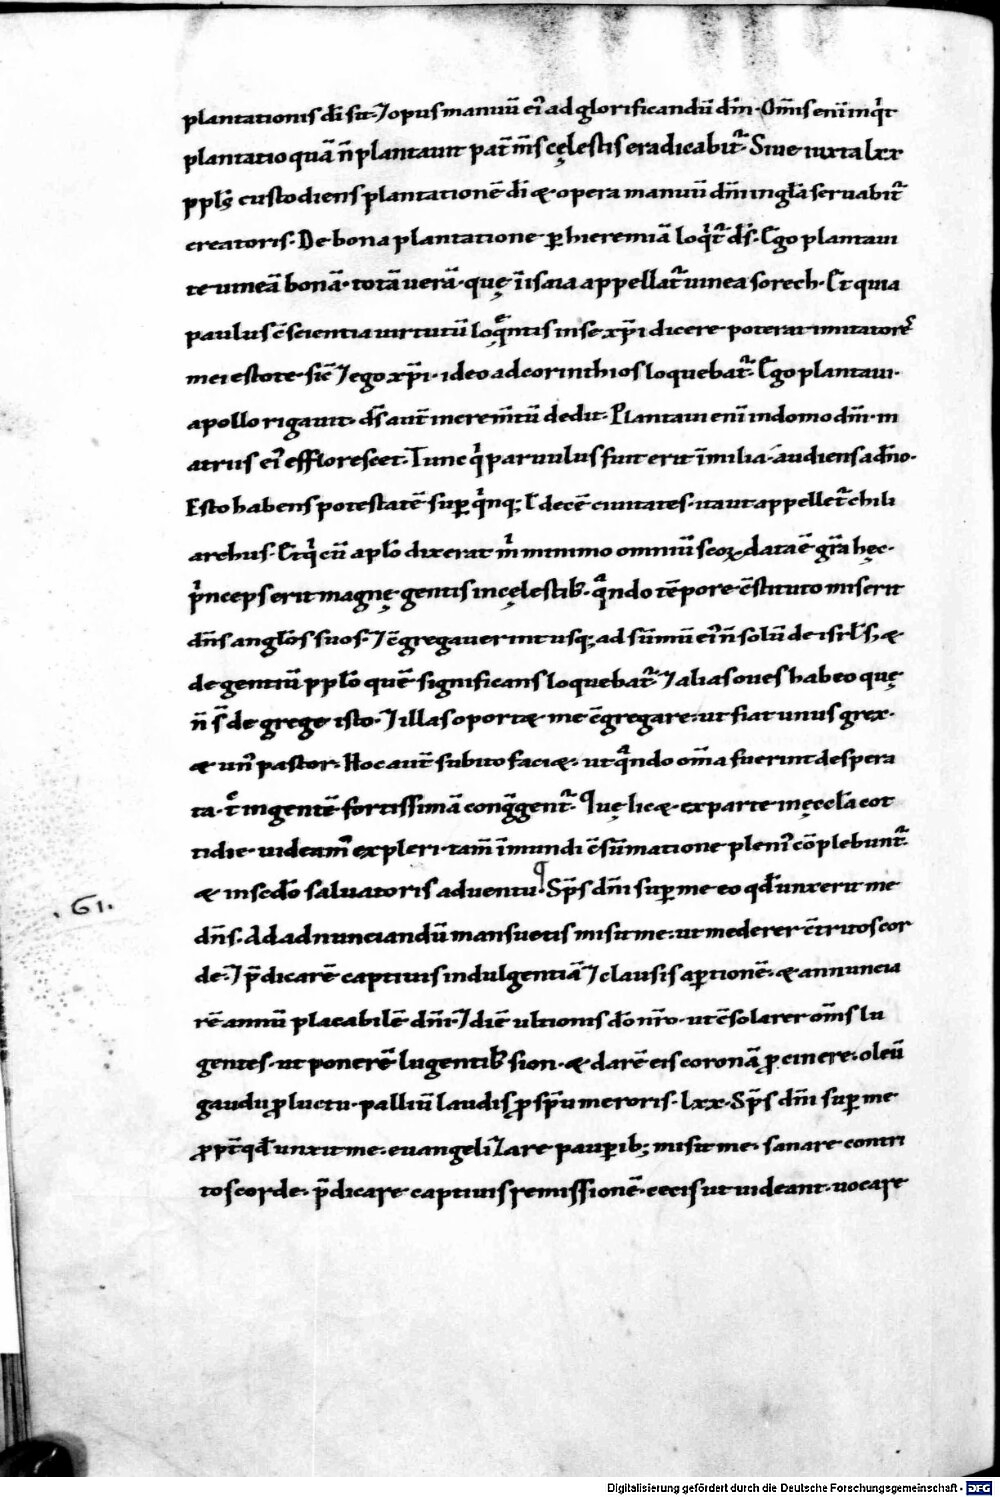 plantationis dī sit· ⁊ opus manuū eiꝰ ad glorificandū dn̄m· Om̄is eni inqͥt
plantatio quā n̄ plantauit pat̄ m̄s cęlestis eradicabit᷑· Siue iuxta lxx
pplꝰ custodiens plantationē dī & opera manuū dn̄i in gl̄a seruabit᷑
creatoris· De bona plantatione ꝑ hieremiā loqͥt᷑ ds̄· Ego plantaui
te uineā bonā· totā uerā· quę ī isaia appellat᷑ uinea sorech· Et quia
paulus c̄scientia uirtutū loqͣntis in se xp̄i dicere poterat imitatoreſ
mei estote· sic̄ ⁊ ego xp̄i· ideo ad corinthios loquebat᷑· Ego plantaui·
apollo rigauit· ds̄ aut̄ increm̄tū dedit· Plantaui enī in domo dn̄i· in
atriis eiꝰ efflorescet· Tunc qͥ paruulus fuit erit ī milia· audiens a dn̄o·
Esto habens potestatē suꝑ qͥnq; ł decē ciuitates· ita ut appellet᷑ chili
archus· Et qͥ cū aplo̅ dixerat m̄ minimo omniū scoꝝ data ē gr̄a hęc·
pͥnceps erit magnę gentis in cęlestib· qͣndo tēpore c̄stituto miserit
dn̄s anglo̅s suos· ⁊ c̄gregauerint usq; ad sūmū eiꝰ n̄ solū de isrl̄s; &
de gentiū pplo̅ quē significans loquebat᷑· ⁊ alias oues habeo quę
n̄ s̄ de grege isto· ⁊ illas oport& me c̄gregare· ut fiat unus grex·
& unꝰ pastor· Hoc aut̄ subito faci&· ut qͣndo om̄a fuerint despera
ta· t̄ ingentē fortissimā congͣgent᷑· Quę lic& ex parte in ęccl̄a cot
tidie uideamꝰ expleri· tam̄ ī mundi c̄sūmatione pleniꝰ cōplebunt᷑·
& in sedo̅ saluatoris aduentu· Sp̄s dn̄i suꝑ me eo qd̄ unxerit me
dn̄s· Ad adnunciandū mansuetis misit me· ut mederer c̄tritos cor
de· ⁊ p̄dicarē captiuis indulgentiā ⁊ clausis aꝑtionē· & annuncia
rē annū placabilē dn̄i· ⁊ diē ultionis do̅ nr̄o· ut c̄solarer om̄s lu
gentes· ut ponerē lugentib sion· & darē eis coronā ꝓ cinere· oleū
gaudii ꝓ luctu· palliū laudis ꝓ sp̄u meroris· lxx· Sp̄s dn̄i suꝑ me
ꝓpt̄ qd̄ unxit me· euangelizare pauꝑib; misit me· sanare contri
tos corde· p̄dicare captiuis remissionē· cecis ut uideant· uocare
·61·
Digitalisierung gefördert durch die Deutsche Forschungsgemeinschaft - DFG